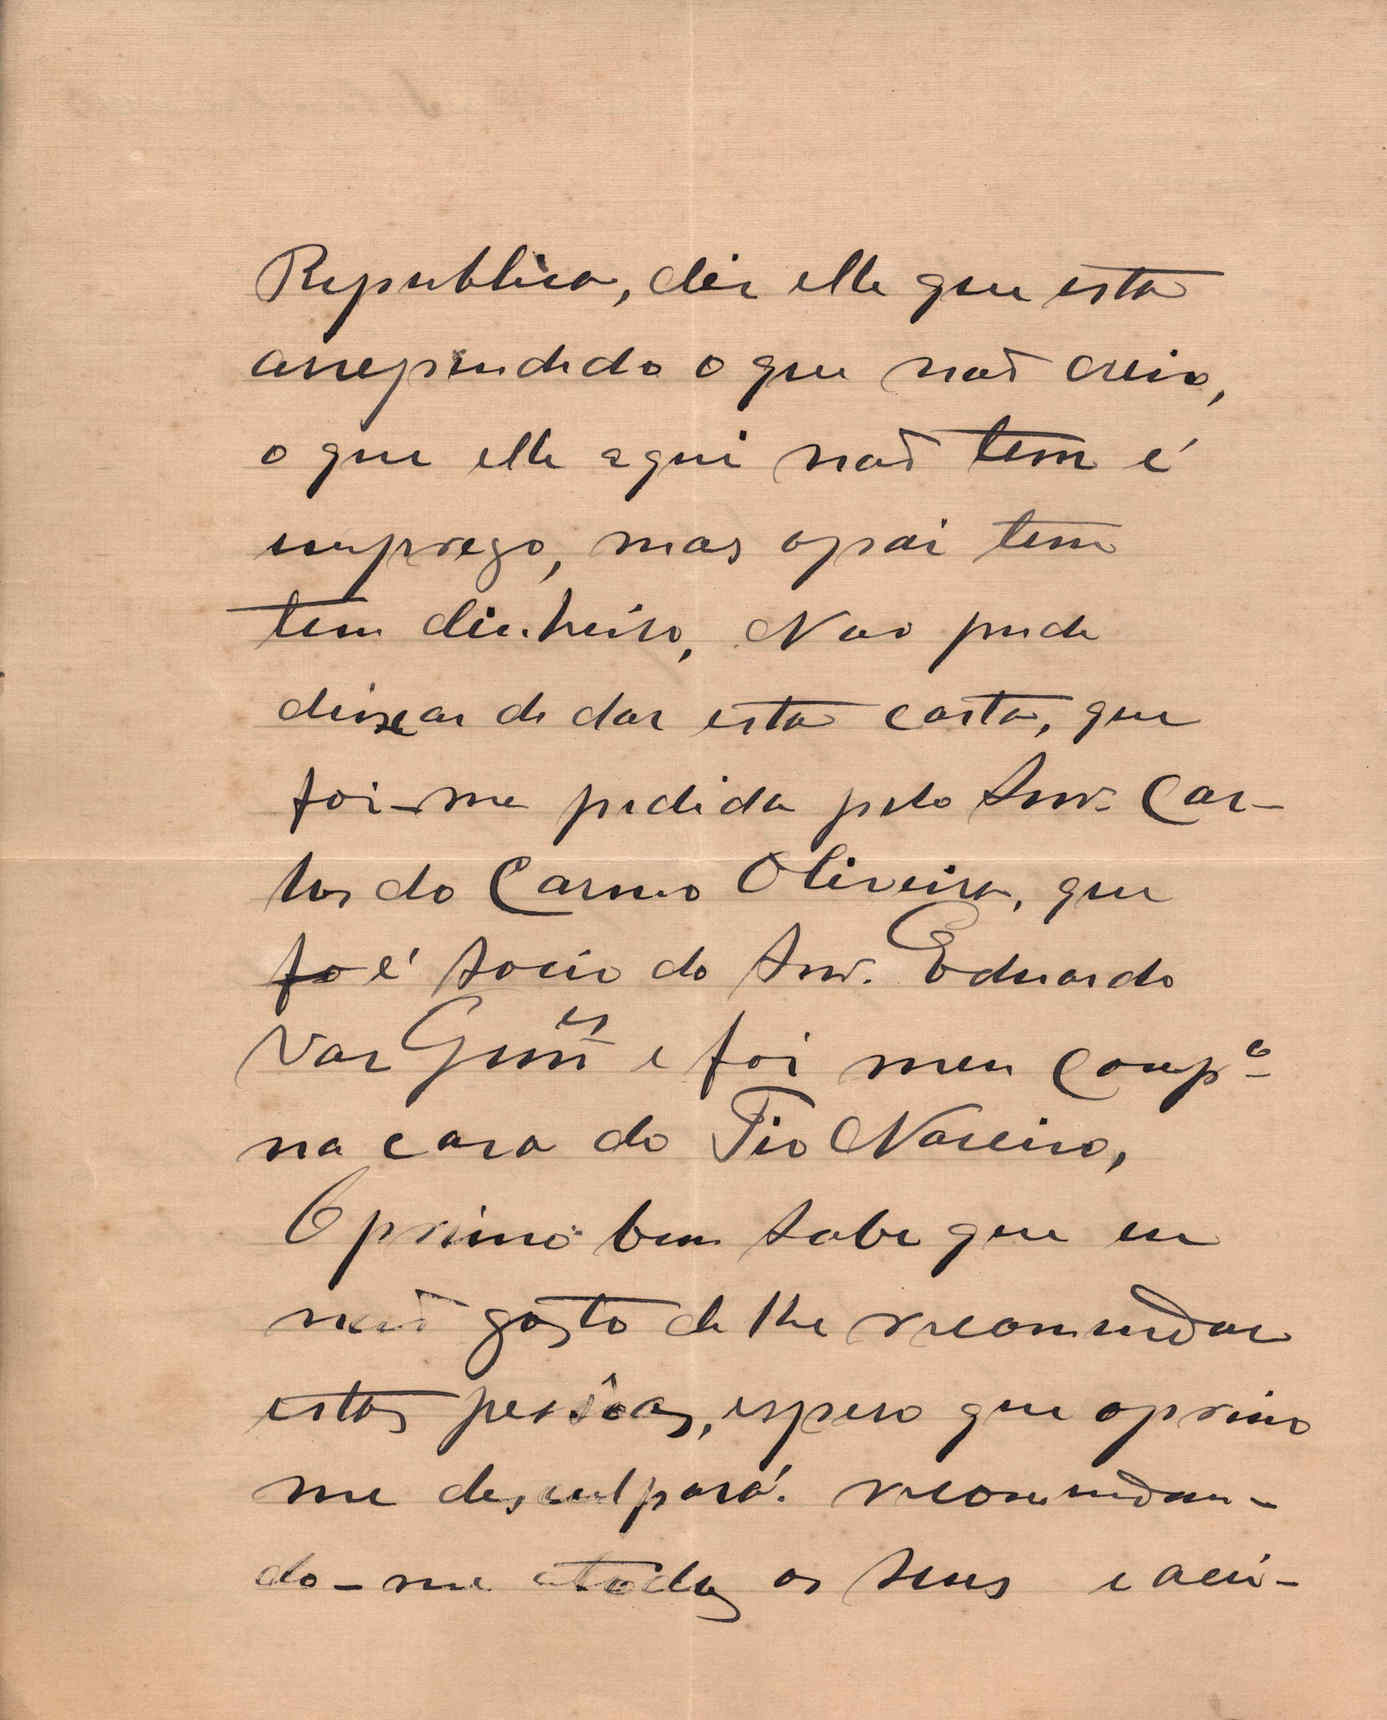 Republica, diz elle que esta
arrependido o que não creio,
o que elle aqui não tem é
emprego, mas o pai tem
tem dinheiro, Nao pude
deixar de dar esta carta, que
foi-me pedida pelo Snr. Car-
los do Carmo Oliveira, que
fo é socio do Snr. Eduardo
Vaz Guim^es e foi meu comp^o
na casa do Tio Narciso,
O primo bem sabe que eu
não gosto de lhe recomendar
estas pessôas, espero que o primo
me desculpará. recomendan-
do-me a todos os seus e acei-